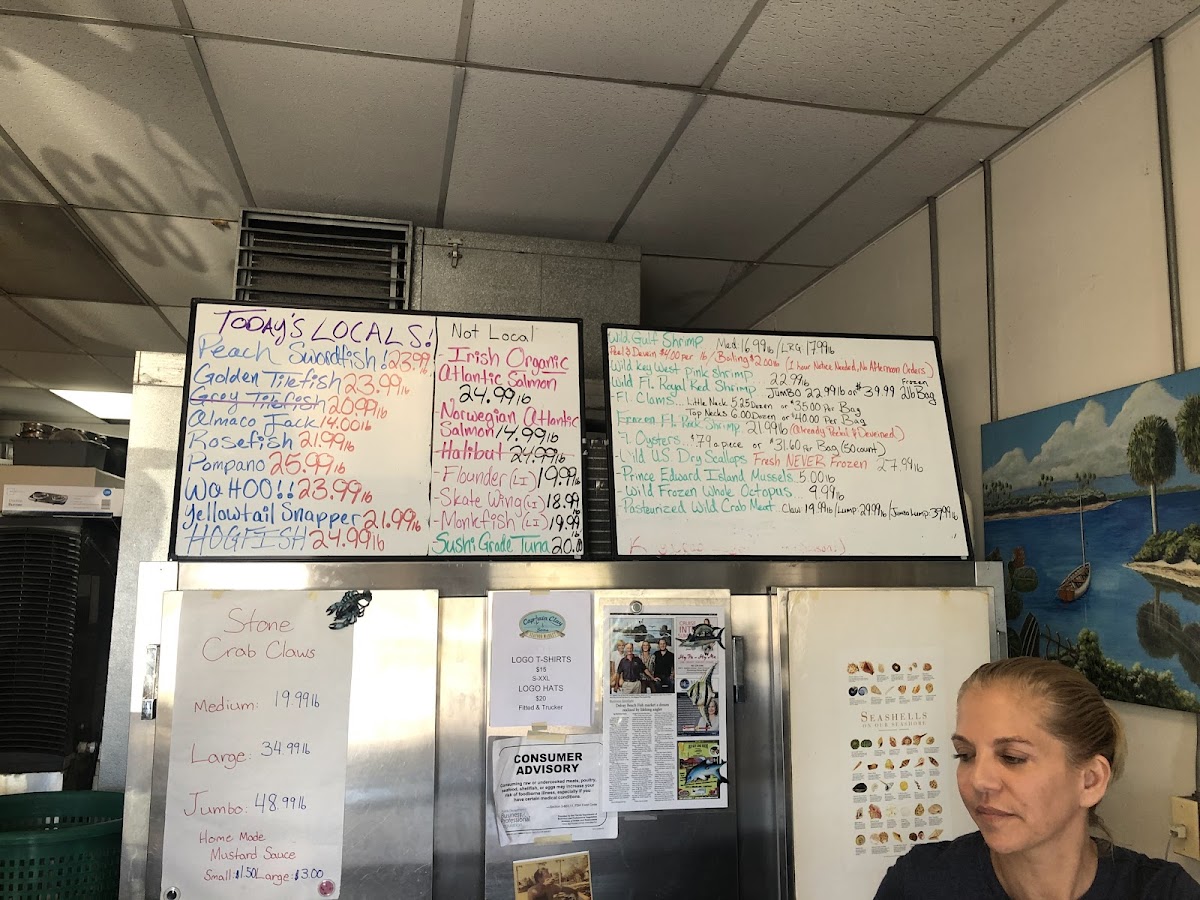 TODAY'S LOCALS!
Peach Swordfish! 23.99
Golden Tilefish 23.99lb
Grey Tilefish 20.99lb
Almaco Jack 14.00lb
Rosefish 21.99lb
Pompano 25.99lb
WAHOO!! 23.99lb
Yellowtail Snapper 21.99lb
HOGFISH 24.99lb
Not Local
- Irish Organic
Atlantic Salmon
24.99lb
Norwegian Atlantic
Salmon 14.99lb
Halibut 24.99lb
- Flounder (LI) 19.99lb
- Skate Wing (LI) 18.99
- Monkfish (LI) 19.99lb
Sushi Grade Tuna 20.00
Wild Gulf Shrimp Med. 16.99lb / LRG 17.99lb
Peel & Devein $4.00 per lb / Boiling $2.00lb (1 hour Notice Needed, No Afternoon Orders)
Wild Key West pink shrimp 22.99lb
Wild Fl. Royal Red Shrimp Jumbo 22.99lb or $39.99 Frozen 2lb Bag
- Fl. Clams... Little Neck 5.25 Dozen or $35.00 Per Bag
Top Necks 6.00 Dozen or $40.00 Per Bag
Frozen FL Rock Shrimp 21.99lb (Already Peeled & Deveined)
Fl. Oysters... $.79 a piece or $31.60 Per Bag (50 count)
- Wild US Dry Scallops Fresh NEVER Frozen 27.99lb
- Prince Edward Island Mussels 5.00lb
- Wild Frozen Whole Octopus 9.99lb
- Pasteurized Wild Crab Meat Claw 19.99lb / Lump 29.99lb / Jumbo Lump 39.99lb
Stone
Crab Claws
Medium: 19.99lb
Large: 34.99lb
Jumbo: 48.99lb
Home Made
Mustard Sauce
Small: $1.50 Large: $3.00
Captain Clay
LOGO T-SHIRTS
$15
S-XXL
LOGO HATS
$20
Fitted & Trucker
CONSUMER
ADVISORY
Consuming raw or undercooked meats, poultry,
seafood, shellfish, or eggs may increase your
risk of foodborne illness, especially if you
have certain medical conditions.
SEASHELLS
ON OUR SEASHORE